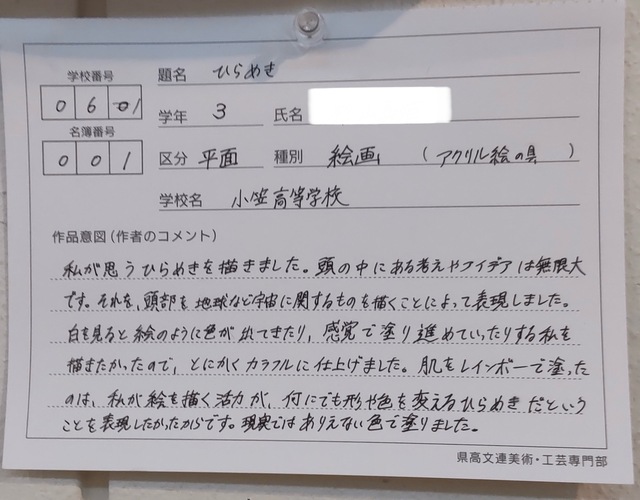 学校番号
題名 ひらめき
0 6 01
学年 3 氏名
名簿番号
0 0 1
区分 平面 種別 絵画 (アクリル絵の具)
学校名 小笠高等学校
作品意図(作者のコメント)
私が思うひらめきを描きました。頭の中にある考えやアイデアは無限大
です。それを、頭部を地球など宇宙に関するものを描くことによって表現しました。
白を見ると絵のように色が出てきたり、感覚で塗り進めていったりする私を
描きたかったので、とにかくカラフルに仕上げました。肌をレインボーで塗った
のは、私が絵を描く活力が、何にでも形や色を変えるひらめきだという
ことを表現したかったからです。現実ではありえない色で塗りました。
県高文連美術・工芸専門部